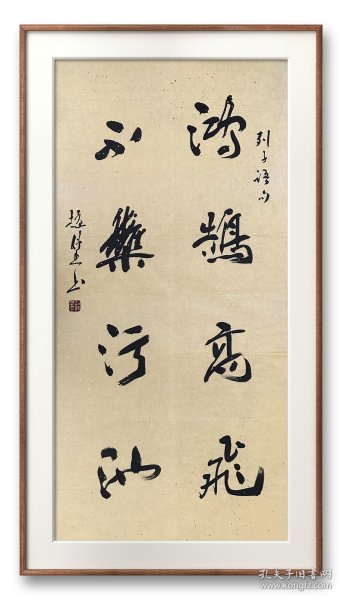 列子语句
鸿鹄高飞
不集污池
孔夫子旧书网
www.kongfz.com